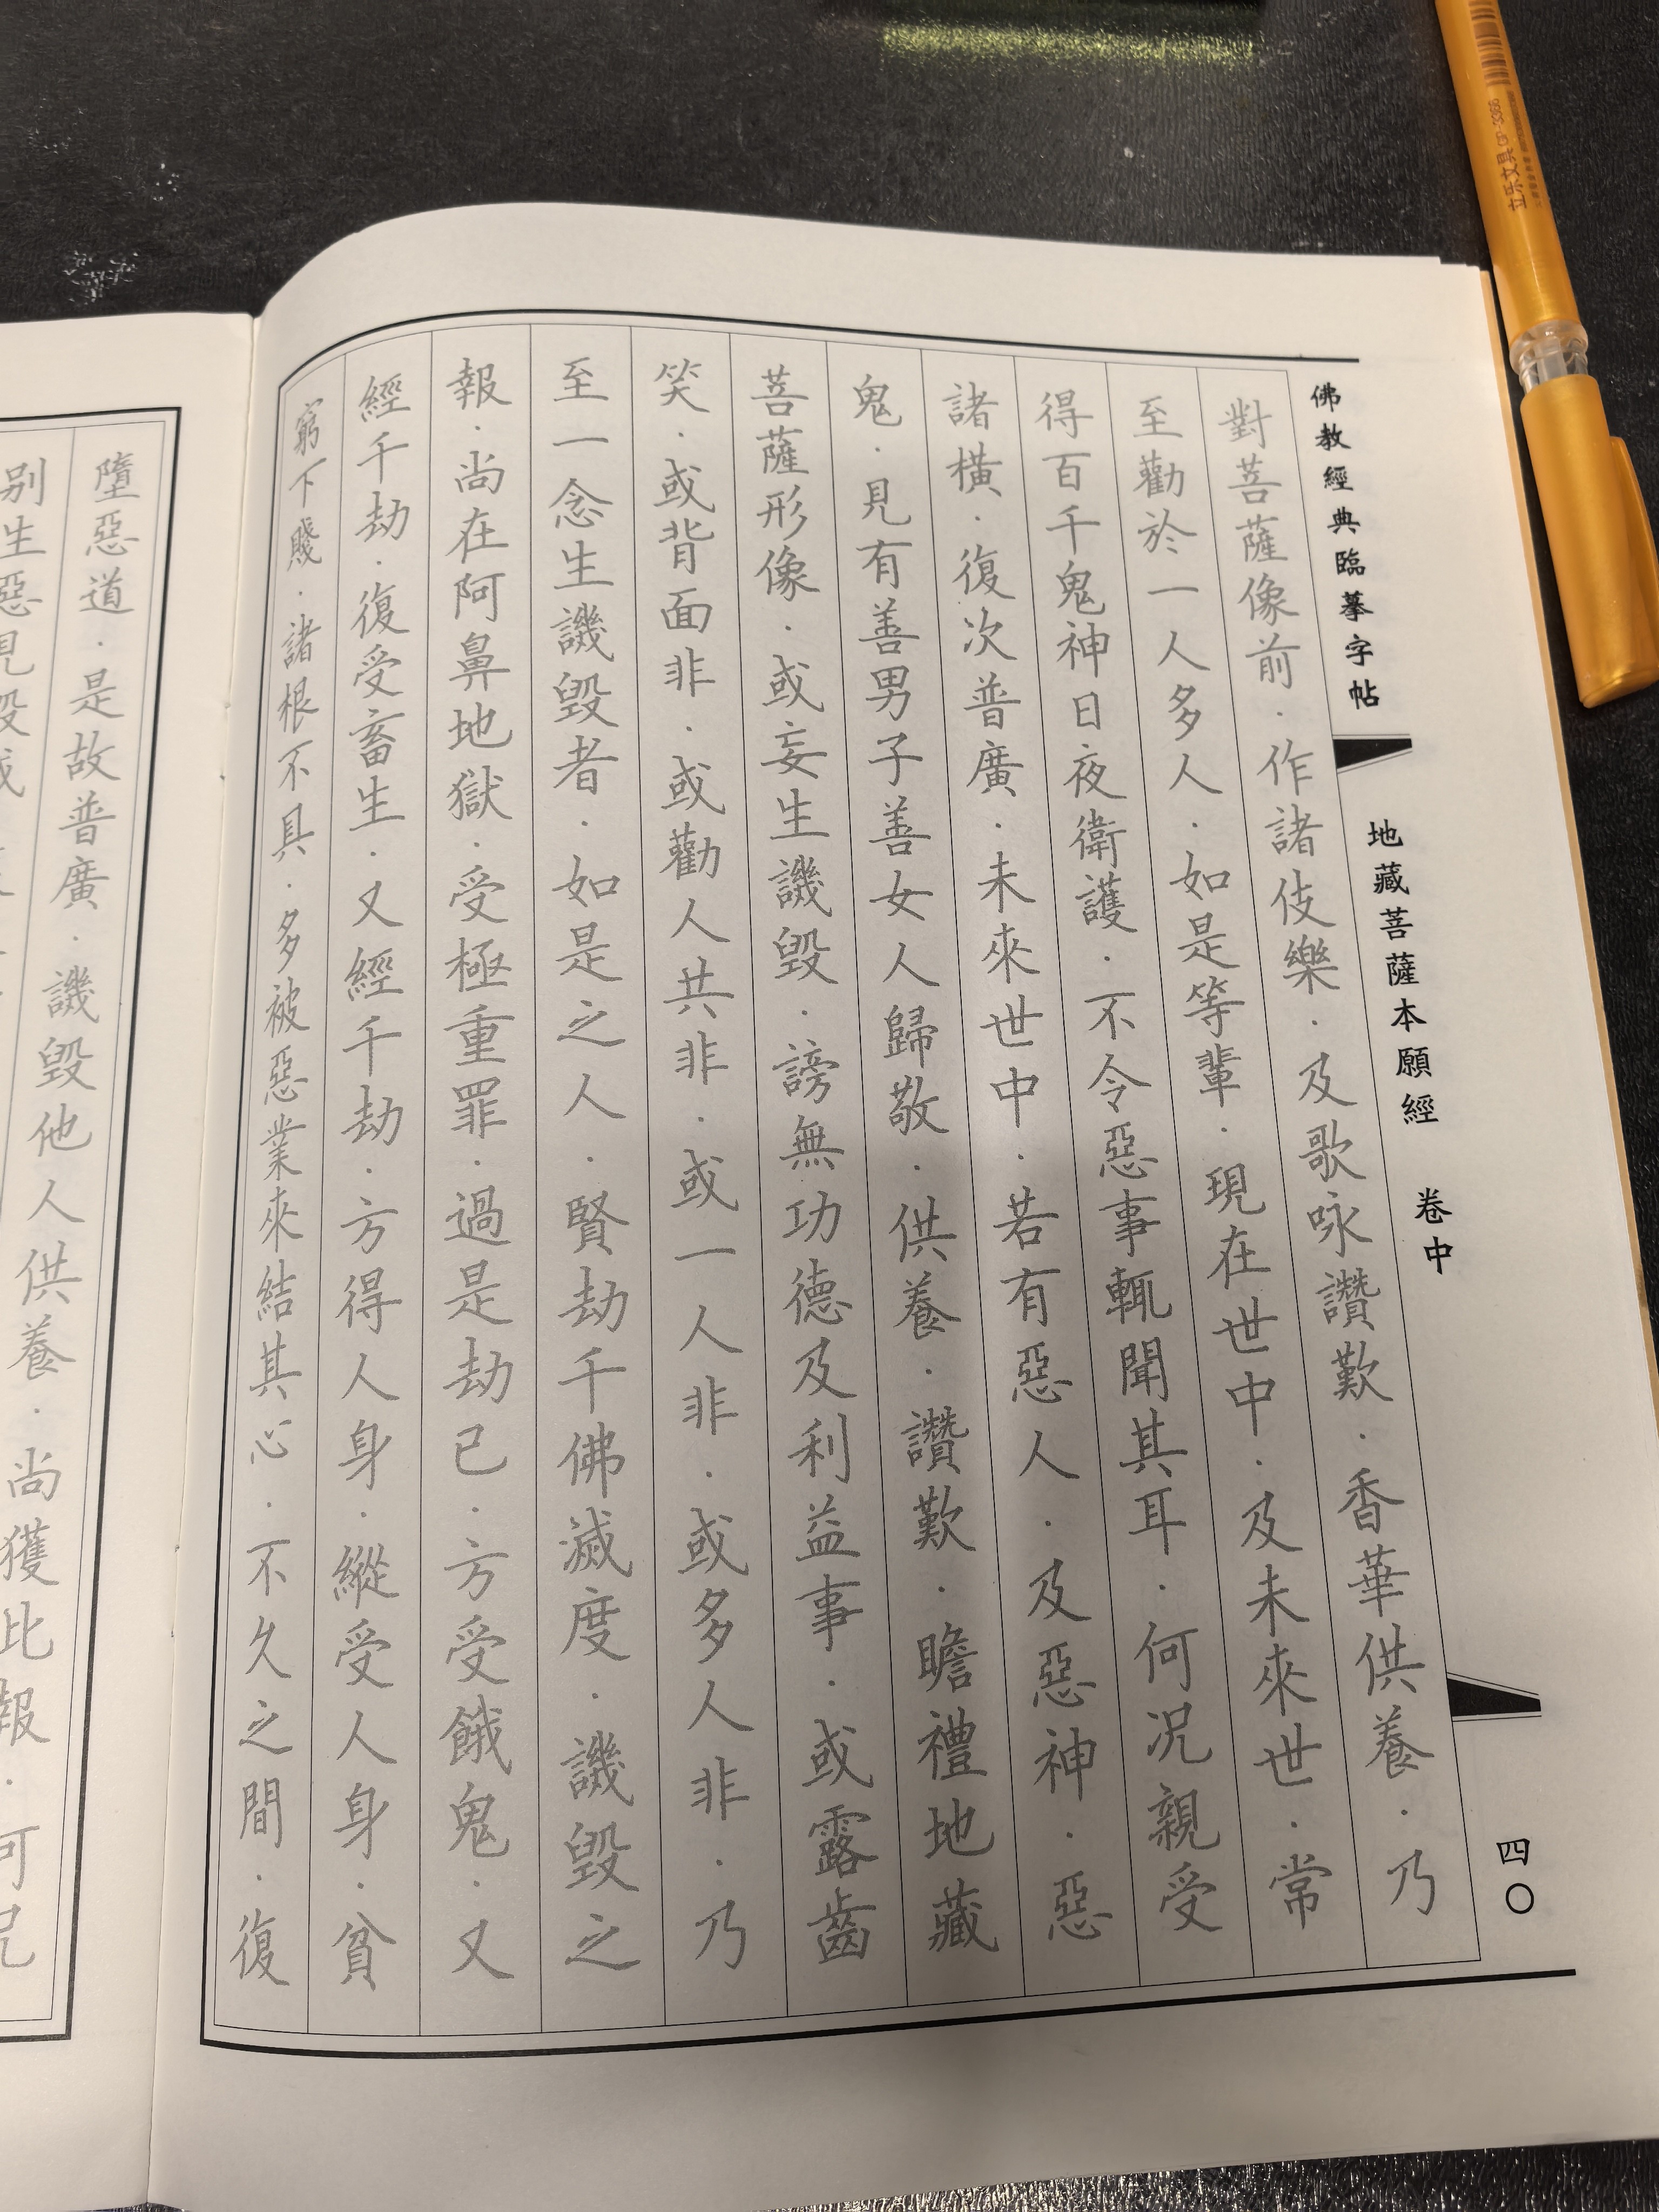 佛教經典臨摹字帖
地藏菩薩本願經 卷中
四〇
對菩薩像前．作諸伎樂．及歌咏讚歎．香華供養．乃
至勸於一人多人．如是等輩．現在世中．及未來世．常
得百千鬼神日夜衛護．不令惡事輒聞其耳．何況親受
諸橫．復次普廣．未來世中．若有惡人．及惡神．惡
鬼．見有善男子善女人歸敬．供養．讚歎．瞻禮地藏
菩薩形像．或妄生譏毀．謗無功德及利益事．或露齒
笑．或背面非．或勸人共非．或一人非．或多人非．乃
至一念生譏毀者．如是之人．賢劫千佛滅度．譏毀之
報．尚在阿鼻地獄．受極重罪．過是劫已．方受餓鬼．又
經千劫．復受畜生．又經千劫．方得人身．縱受人身．貧
窮下賤．諸根不具．多被惡業來結其心．不久之間．復
墮惡道．是故普廣．譏毀他人供養．尚獲比報．何況
別生惡見毀滅
立乐文具 GP-3366